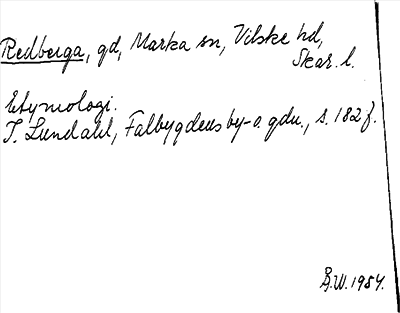 Redberga, gd, Marka sn, Vilske hd,
Skar. l.
Etymologi.
I. Lundahl, Falbygdens by- o. gdn., s. 182 f.
B.W. 1954.